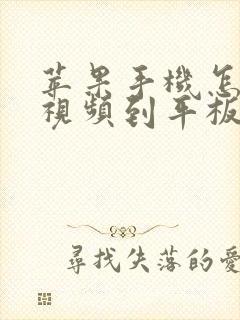 苹果手機怎
視頻到平板
尋找失落的愛